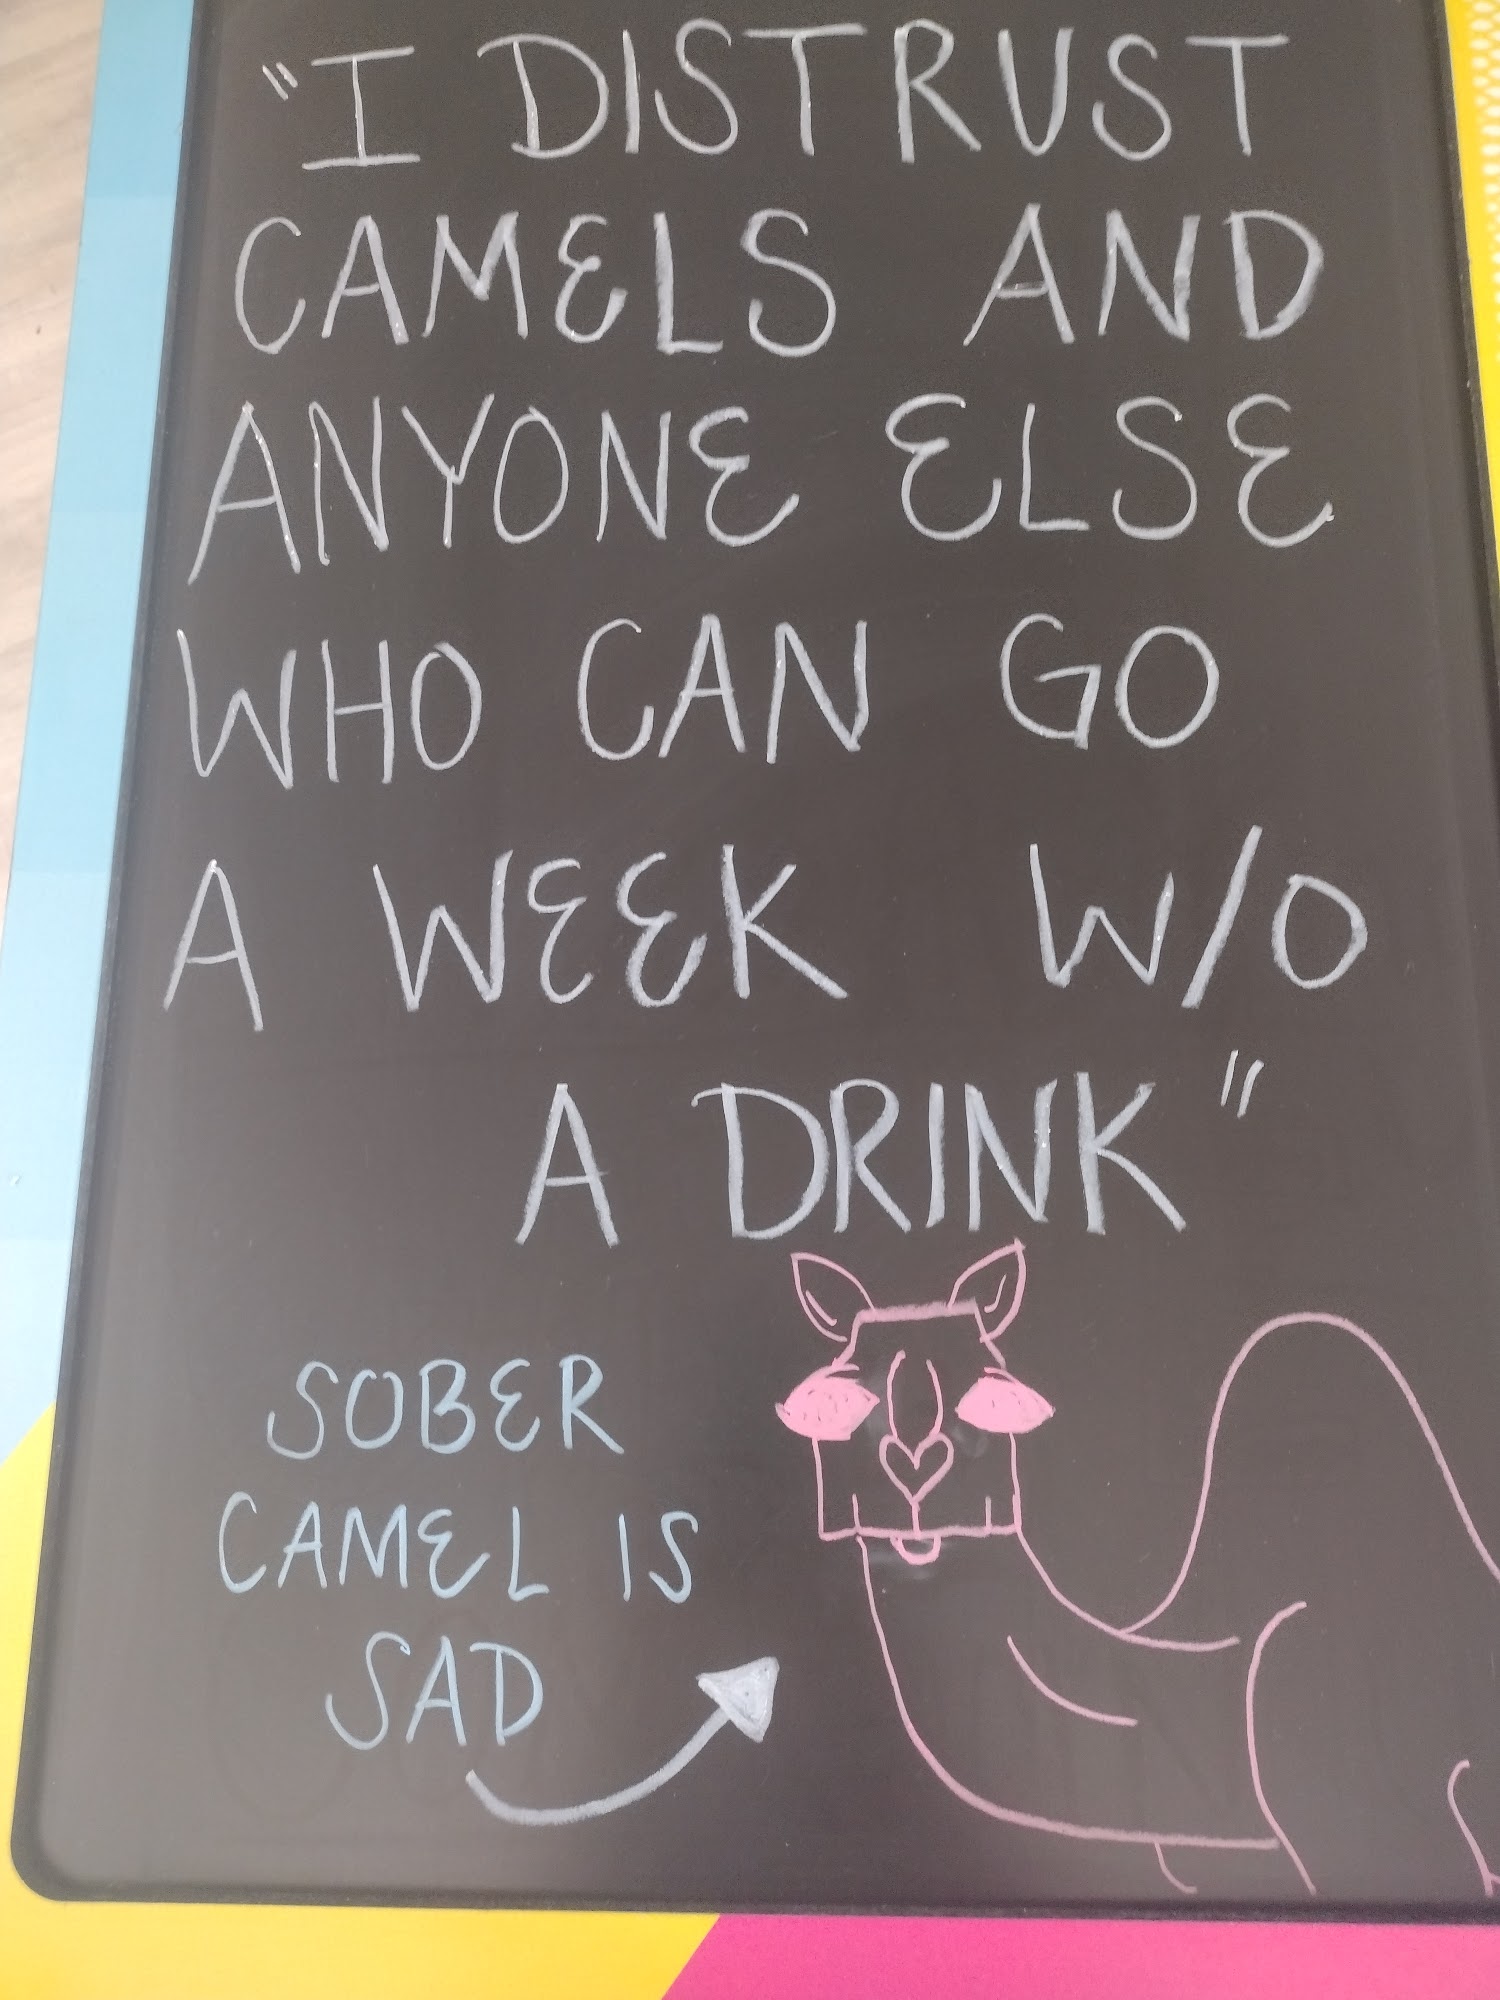 "I DISTRUST
CAMELS AND
ANYONE ELSE
WHO CAN GO
A WEEK W/O
A DRINK"
SOBER
CAMEL IS
SAD